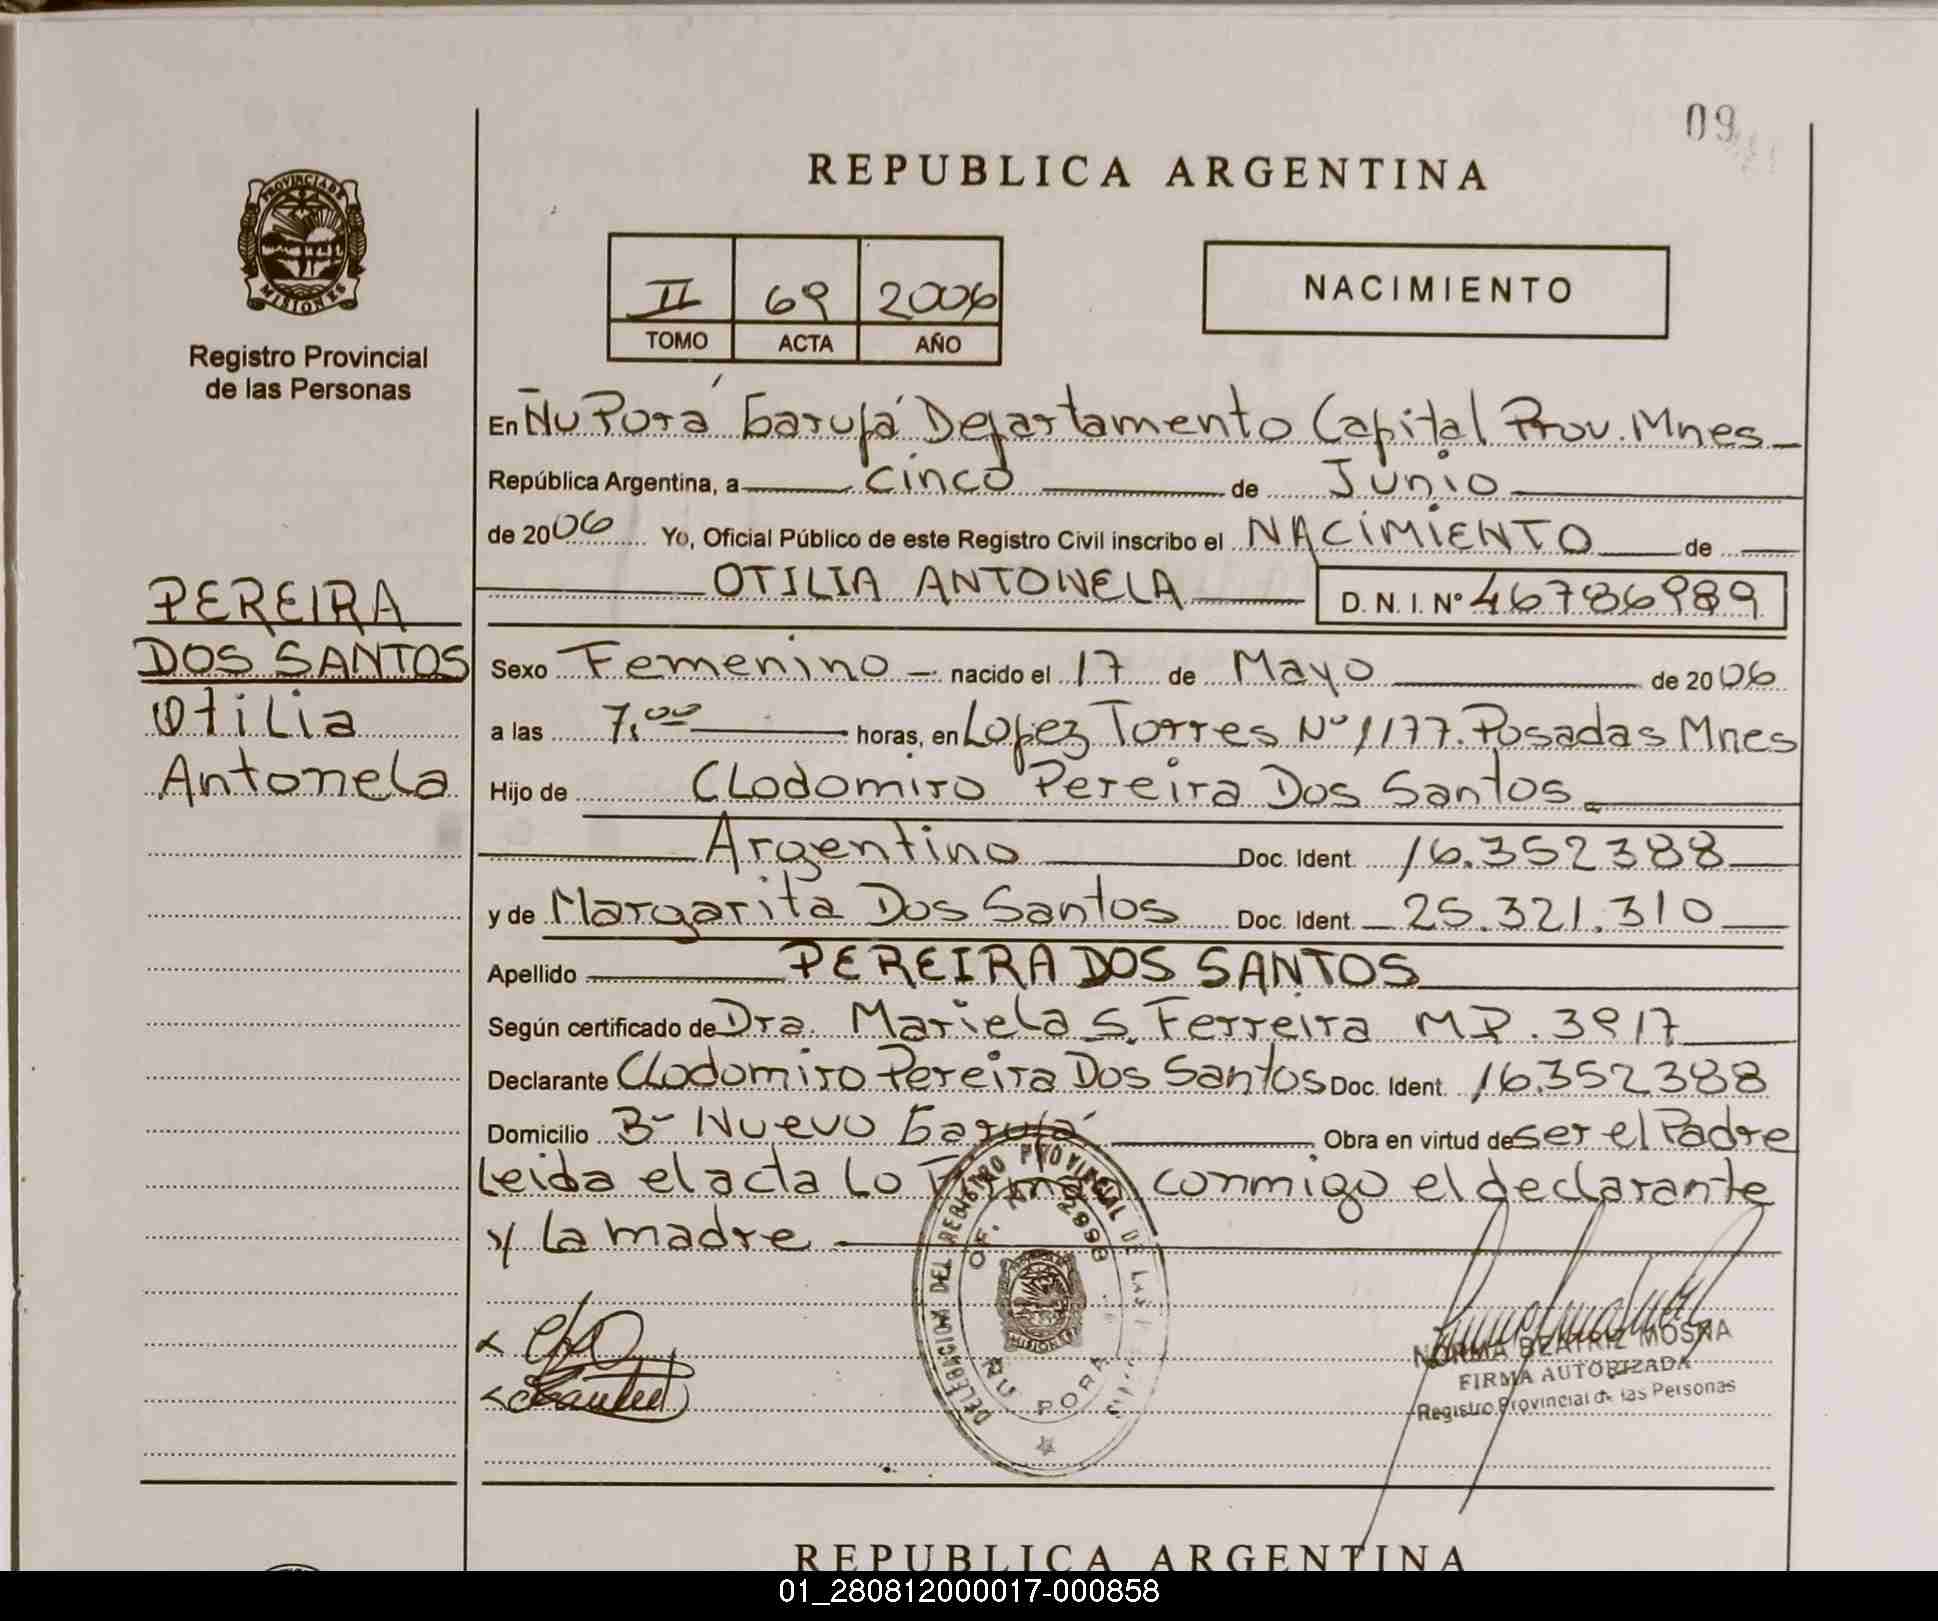 09
REPUBLICA ARGENTINA
PROVINCIA DE
MISIONES
Registro Provincial
de las Personas
II 69 2006
TOMO ACTA AÑO
NACIMIENTO
En Ñu Porá Garupá Departamento Capital Prov. Mnes
República Argentina, a cinco de Junio
de 2006 Yo, Oficial Público de este Registro Civil inscribo el NACIMIENTO de
OTILIA ANTONELA D. N. I. Nº 46786989
PEREIRA
DOS SANTOS
Otilia
Antonela
Sexo Femenino nacido el 17 de Mayo de 2006
a las 7,00 horas, en Lopez Torres Nº 1177. Posadas Mnes
Hijo de Clodomiro Pereira Dos Santos
Argentino Doc. Ident. 16.352388
y de Margarita Dos Santos Doc. Ident. 25.321.310
Apellido PEREIRA DOS SANTOS
Según certificado de Dra. Mariela S. Ferreira MP. 3917
Declarante Clodomiro Pereira Dos Santos Doc. Ident. 16.352388
Domicilio Bº Nuevo Garupá Obra en virtud de ser el Padre
Leida el acta Lo conmigo el declarante
y la madre
DELEGACION DEL REGISTRO PROVINCIAL DE LAS
OF. 2998
MISIONES
ÑU PORA
NORMA BEATRIZ MOSNA
FIRMA AUTORIZADA
Registro Provincial de las Personas
REPUBLICA ARGENTINA
01_280812000017-000858